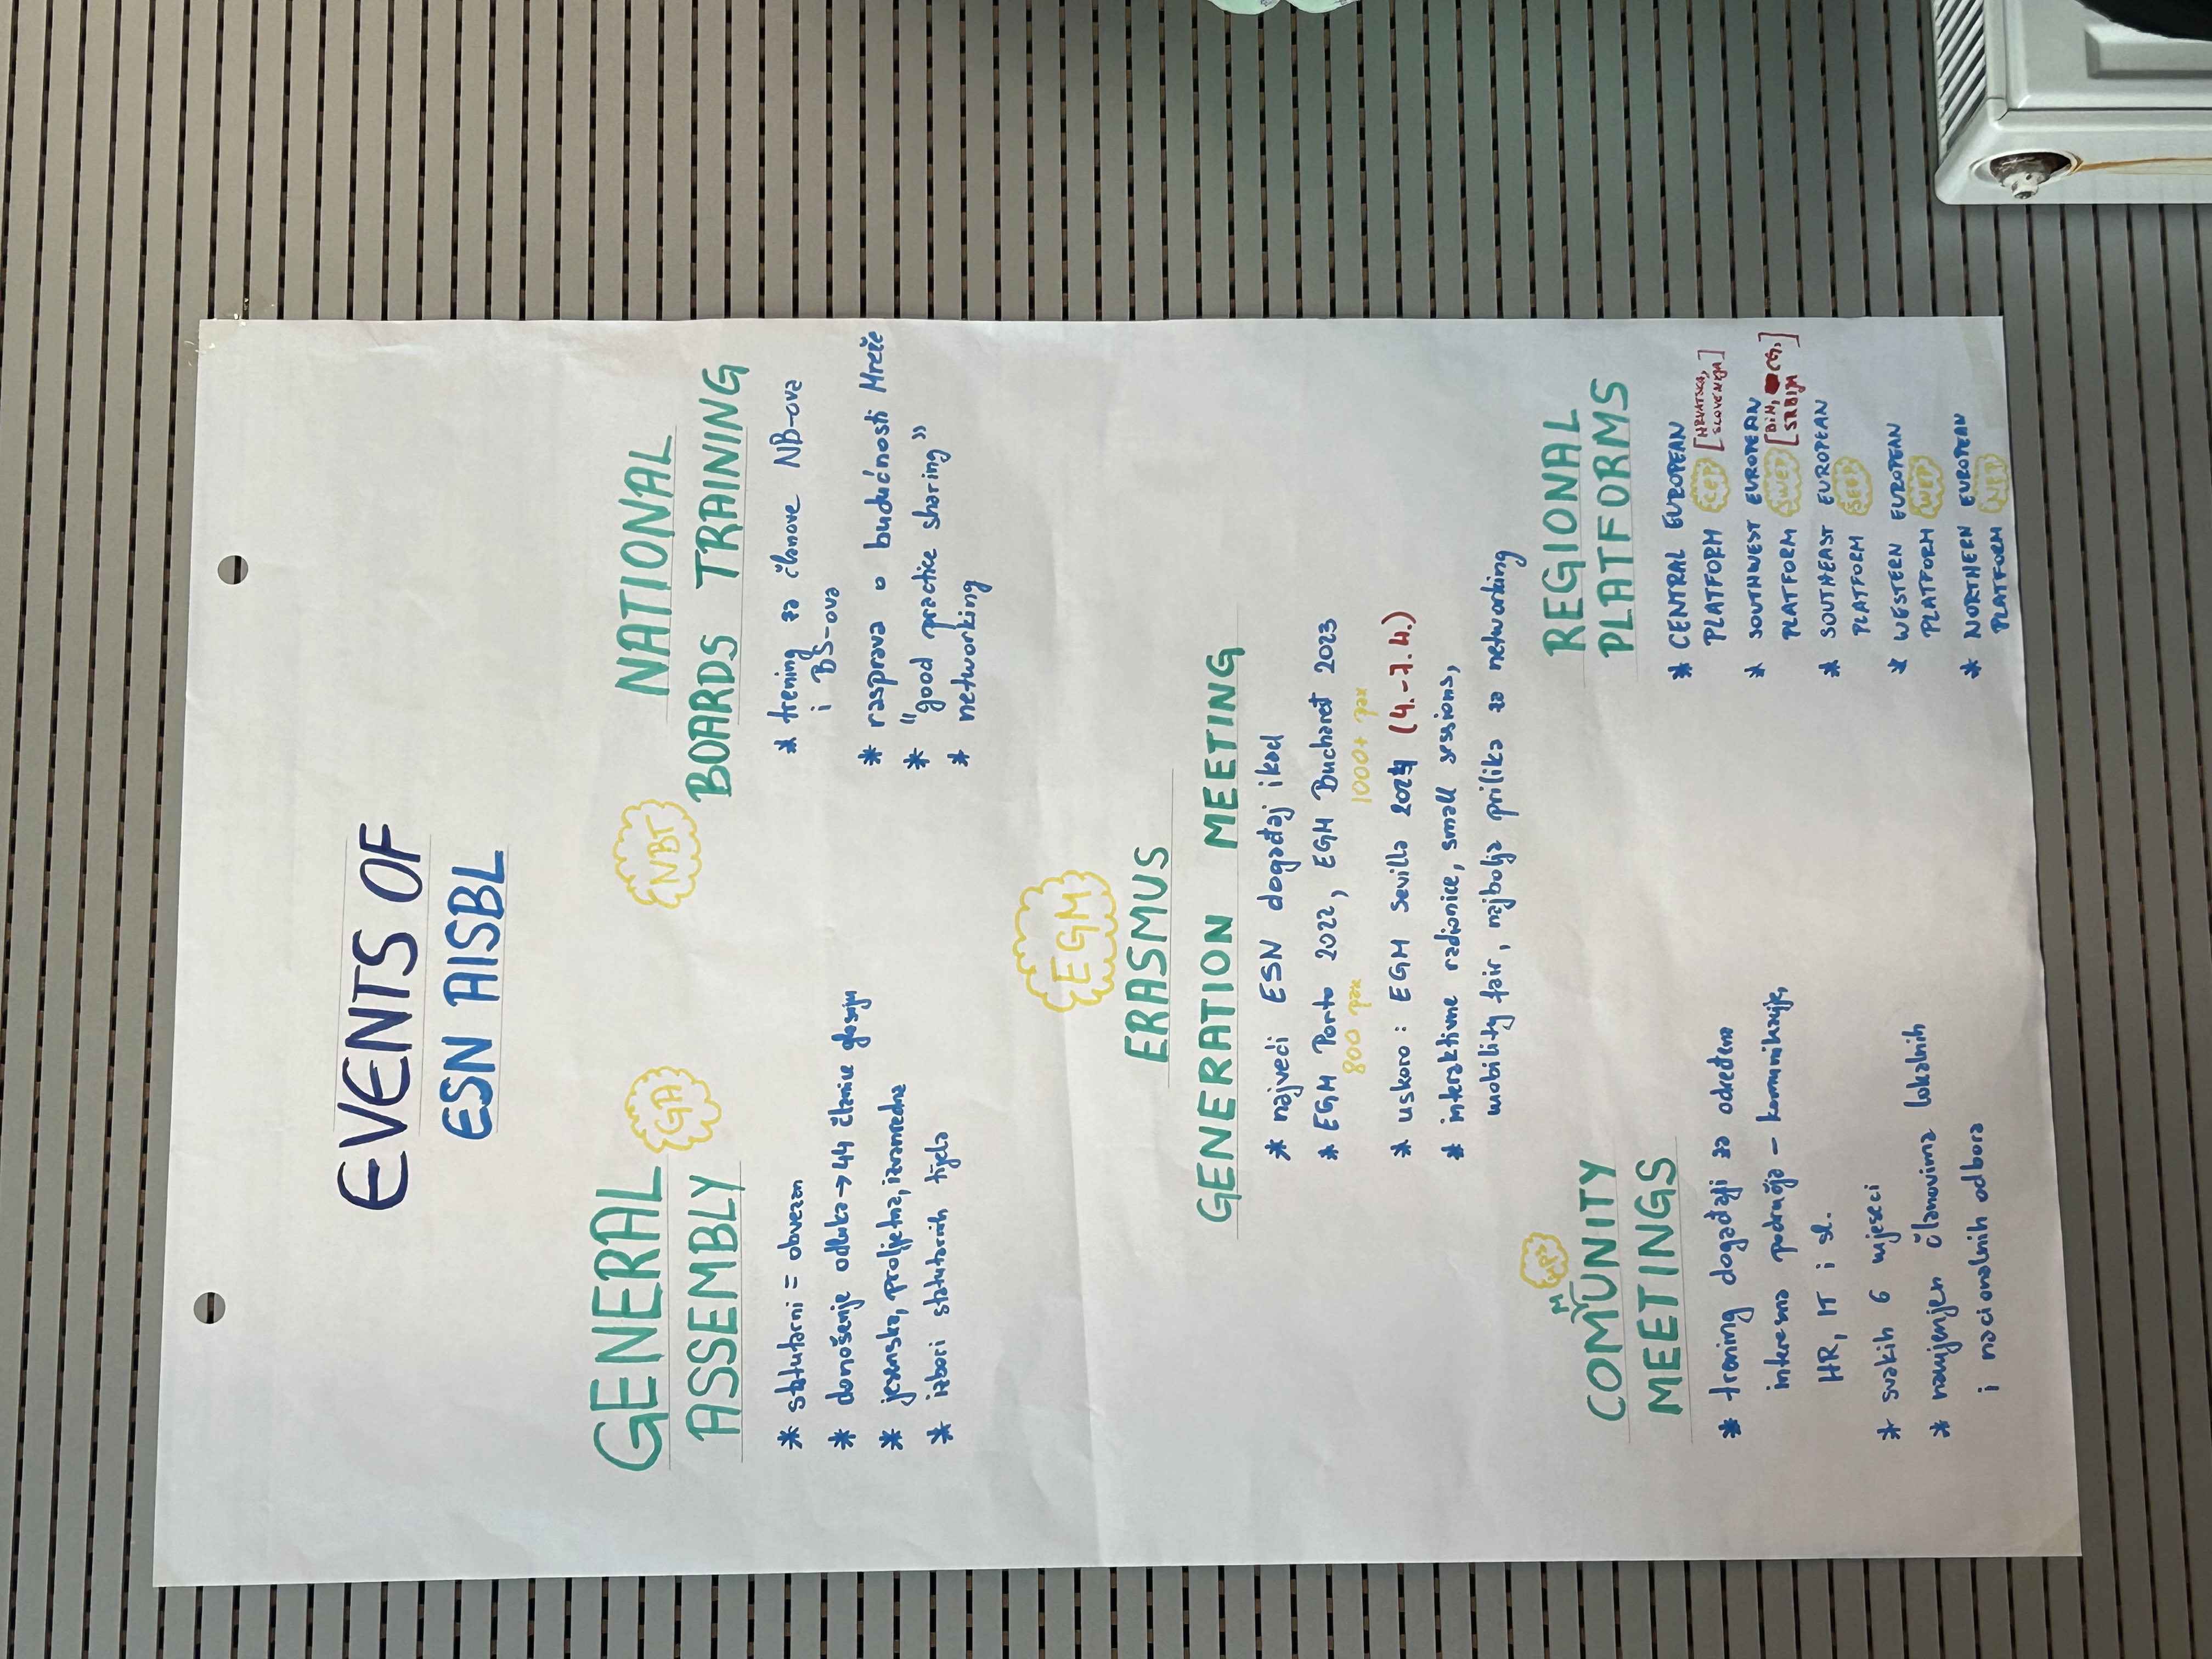 EVENTS OF
ESN AISBL
GENERAL
ASSEMBLY
GA
* statutarni = obvezan
* donošenje odluka → 44 članice glasaju
* jesenska, proljetna, izvanredna
* izbori statutarnih tijela
NBT
NATIONAL
BOARDS TRAINING
* trening za članove NB-ova
i BS-ova
* rasprava o budućnosti Mreže
* "good practice sharing"
* networking
EGM
ERASMUS
GENERATION MEETING
* najveći ESN događaj ikad
* EGM Porto 2022, EGM Bucharest 2023
800 pax 1000+ pax
* uskoro: EGM Sevilla 2024 (4.-7.4.)
* interaktivne radionice, small sessions,
mobility fair, najbolja prilika za networking
COMMUNITY
MEETINGS
* trening događaji za određena
interesna područja - komunikacije,
HR, IT i sl.
* svakih 6 mjeseci
* namijenjen članovima lokalnih
i nacionalnih odbora
REGIONAL
PLATFORMS
* CENTRAL EUROPEAN
PLATFORM CEP [HRVATSKA,
SLOVENIJA]
* SOUTHWEST EUROPEAN
PLATFORM SWEP [BiH, CG,
SRBIJA]
* SOUTHEAST EUROPEAN
PLATFORM SEEP
* WESTERN EUROPEAN
PLATFORM WEP
* NORTHERN EUROPEAN
PLATFORM NEP